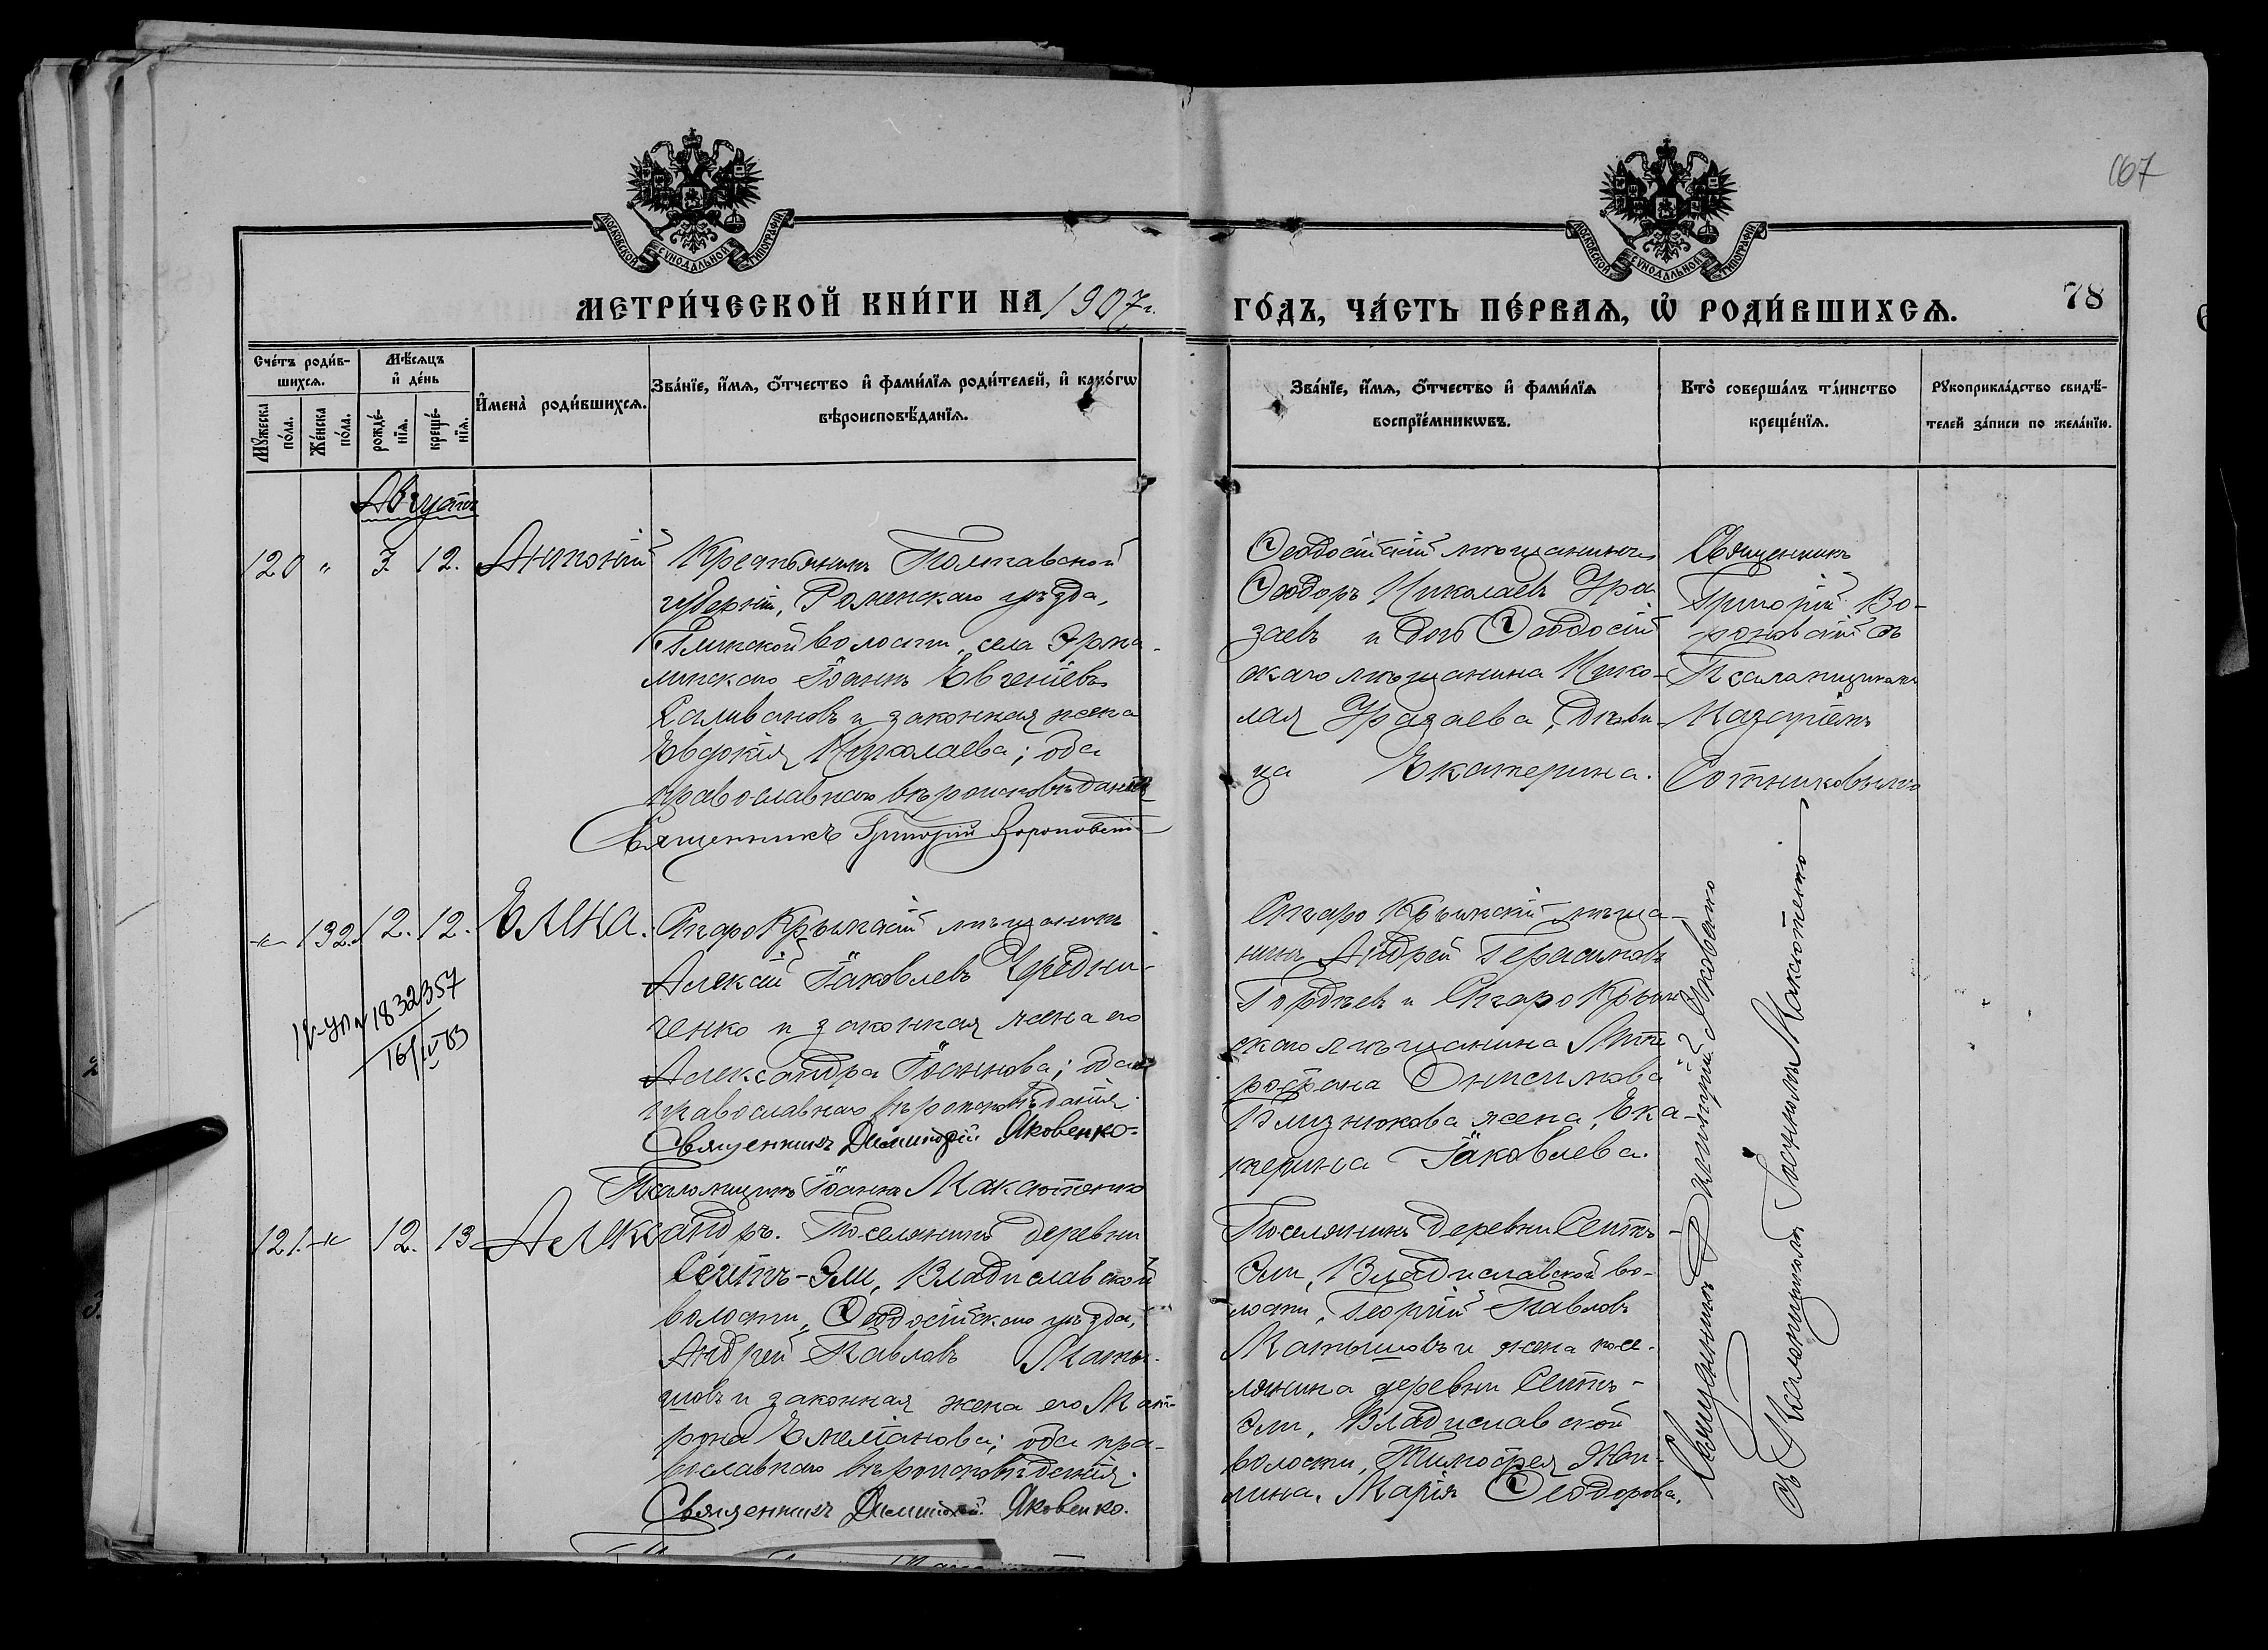 167
МОСКОВСКОЙ СѴНОДАЛЬНОЙ ТИПОГРАФІИ
МОСКОВСКОЙ СѴНОДАЛЬНОЙ ТИПОГРАФІИ
МЕТРИ́ЧЕСКОЙ КНИ́ГИ НА 1907 г.
ГО́ДЪ, ЧА́СТЬ ПЕ́РВАѦ, Ѡ҆ РОДИ́ВШИХСѦ.
78
Сче́тъ роди́в-
шихсѧ.
Мѣ́сѧцъ
и҆ де́нь
Мꙋ́жеска
по́ла.
Же́нска
по́ла.
рожде́-
нїѧ.
креще́-
нїѧ.
И҆мена̀ роди́вшихсѧ.
Зва́нїе, и҆́мѧ, ѻ҆́тчество и҆ фами́лїѧ роди́телей, и҆ како́гѡ
вѣроисповѣ́данїѧ.
Зва́нїе, и҆́мѧ, ѻ҆́тчество и҆ фами́лїѧ
воспрїе́мникѡвъ.
Кто̀ соверша́лъ та́инство
креще́нїѧ.
Рꙋкоприкла́дство свидѣ́-
телей за́писи по жела́нїю.
Августъ
120 " 3. 12. Антоній
Крестьянинъ Полтавской
губерніи, Роменскаго уѣзда,
Глинской волости, села
Іоаннъ Евгеніевъ
Селивановъ и законная жена
Евдокія Николаева; оба
православнаго вѣроисповѣданія
Священникъ Григорій Вороновскій
Ѳеодосійскій мѣщанинъ
Ѳеодоръ Николаевъ Ура
заевъ и дочь Ѳеодосій
скаго мѣщанина Нико-
лая Уразаева, дѣви-
ца Екатерина.
Священникъ
Григорій Во-
роновскій съ
Псаломщикомъ
Сотниковымъ
132. 12. 12. Елена.
Старо Крымскій мѣщанинъ
Алексій Іаковлевъ Чередни-
ченко и законная жена его
Александра Іоаннова; оба
православнаго вѣроисповѣданія.
Священникъ Димитрій Яковенко.
Псаломщикъ Іоаннъ Максютенко
1832357
16/IV 83
Старо Крымскій мѣща-
нинъ Андрей Герасимовъ
Гордѣевъ и Старо Крым
скаго мѣщанина Мит
рофана Онисимова
Близнюкова жена, Ека-
терина Іаковлева.
121. 12. 13 Александръ.
Поселянинъ деревни
Сеитъ-Эли, Владиславской
волости, Ѳеодосійскаго уѣзда,
Андрей Павловъ Маты-
шовъ и законная жена его Мат-
рона Емеліанова; оба пра-
вославнаго вѣроисповѣданія.
Священникъ Димитрій Яковенко.
Поселянинъ деревни Сеитъ-
Эли, Владиславской во-
лости, Георгій Павловъ
Матышовъ и жена посе-
лянина деревни Сеитъ-
Эли, Владиславской
волости, Тимофея
Марія Ѳеодорова.
Священникъ Димитрій Яковенко
съ Псаломщикомъ Іоанномъ Максютенко